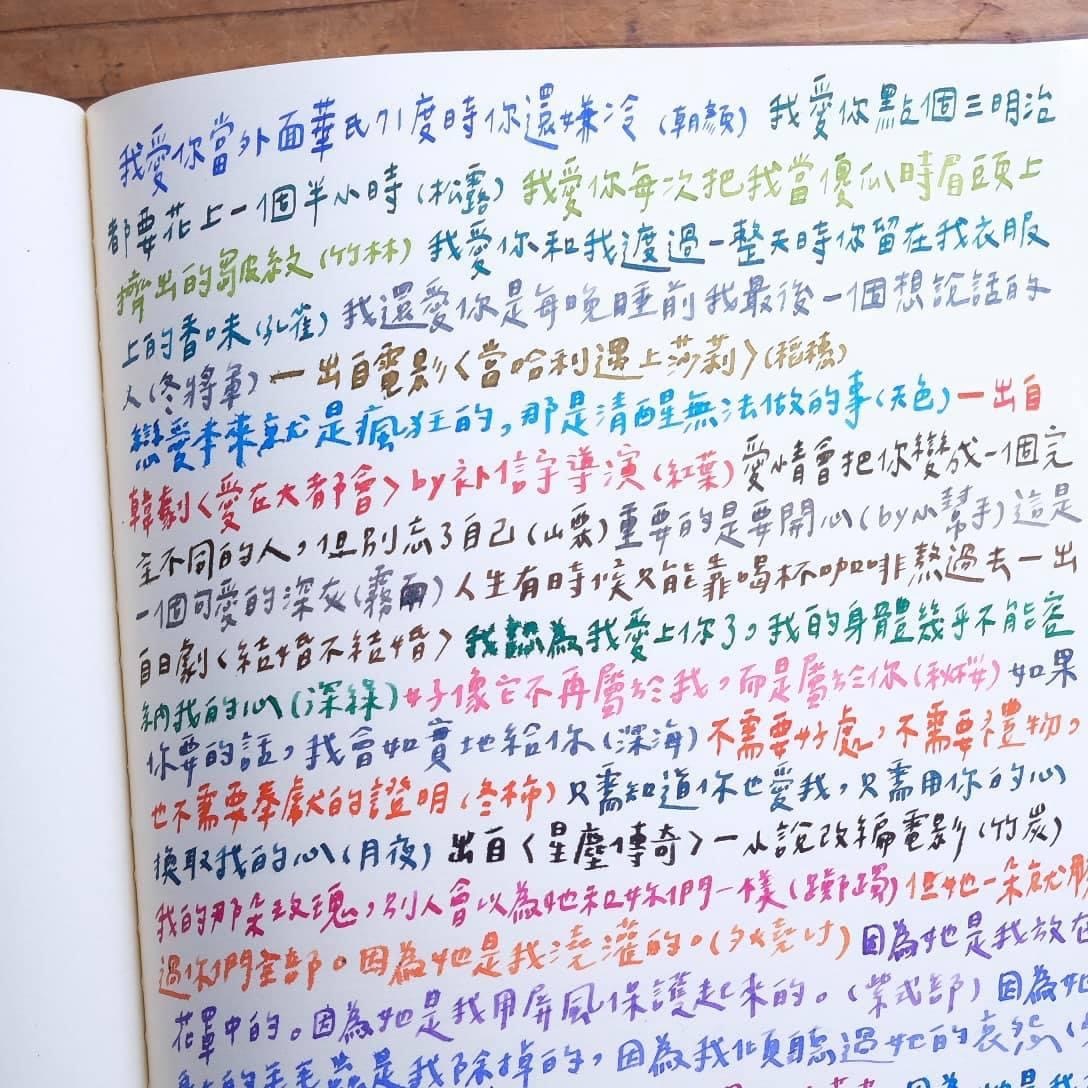 我愛你當外面華氏71度時你還嫌冷(朝顏) 我愛你點個三明治
都要花上一個半小時(松露) 我愛你每次把我當傻瓜時眉頭上
擠出的皺紋(竹林) 我愛你和我渡過一整天時你留在我衣服
上的香味(孔雀) 我還愛你是每晚睡前我最後一個想說話的
人(冬將軍) 一出自電影〈當哈利遇上莎莉〉(稻穗)
戀愛本來就是瘋狂的,那是清醒無法做的事(天色) 一出自
韓劇〈愛在大都會〉by朴信宇導演(紅葉) 愛情會把你變成一個完
全不同的人,但別忘了自己(山栗) 重要的是要開心(by小幫手) 這是
一個可愛的深灰(霧雨) 人生有時候只能靠喝杯咖啡熬過去一出
自日劇〈結婚不結婚〉 我認為我愛上你了,我的身體幾乎不能容
納我的心(深綠) 好像它不再屬於我,而是屬於你(秋桜) 如果
你要的話,我會如實地給你(深海) 不需要好處,不需要禮物,
也不需要奉獻的證明(冬柿) 只需知道你也愛我,只需用你的心
換取我的心(月夜) 出自〈星塵傳奇〉一小說改編電影(竹炭)
我的那朵玫瑰,別人會以為她和妳們一樣(躑躅) 但她一朵就勝
過你們全部。因為她是我澆灌的。(夕燒け) 因為她是我放在
花罩中的。因為她是我用屏風保護起來的。(紫式部) 因為她
的毛毛蟲是我除掉的,因為我傾聽過她的哀怨